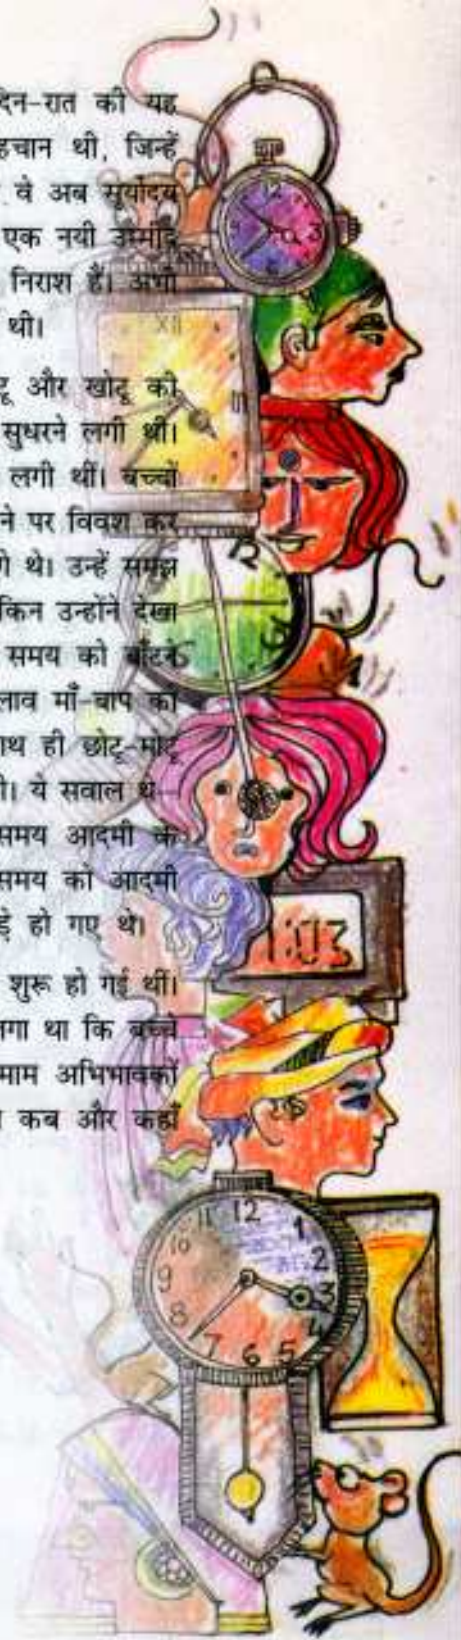 दिन-रात की यह
हचान थी, जिन्हें
वे अब सूर्योदय
एक नयी उम्मीद
निराश हैं। अभी
थी।
टू और खोटू को
सुधरने लगी थी।
लगी थीं। बच्चों
ने पर विवश कर
गे थे। उन्हें समझ
किन उन्होंने देखा
समय को बाँटने
लाव माँ-बाप को
ाथ ही छोटू-मोटू
ी। ये सवाल थे–
समय आदमी के
समय को आदमी
ड़े हो गए थे।
शुरू हो गई थीं।
लगा था कि बच्चे
माम अभिभावकों
कब और कहाँ
12
3
6
XII
III
12
1:03
12
1
2
3
4
5
6
7
8
9
10
11